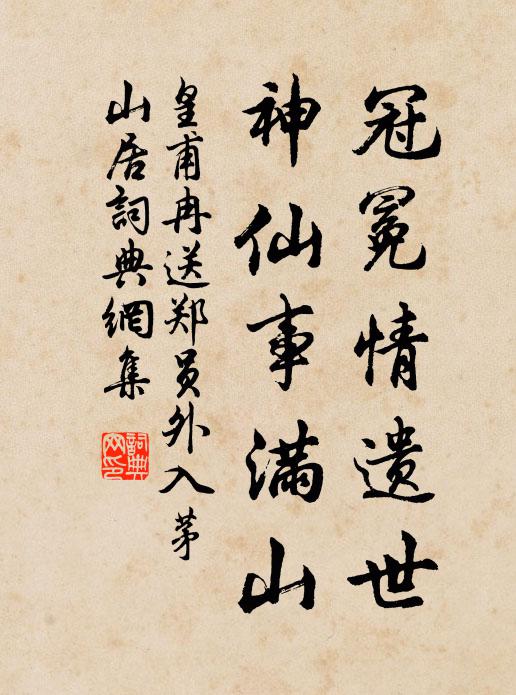 冠冕情遗世
神仙事满山
皇甫冉送郑员外入茅
山居词典網集
詞典网印